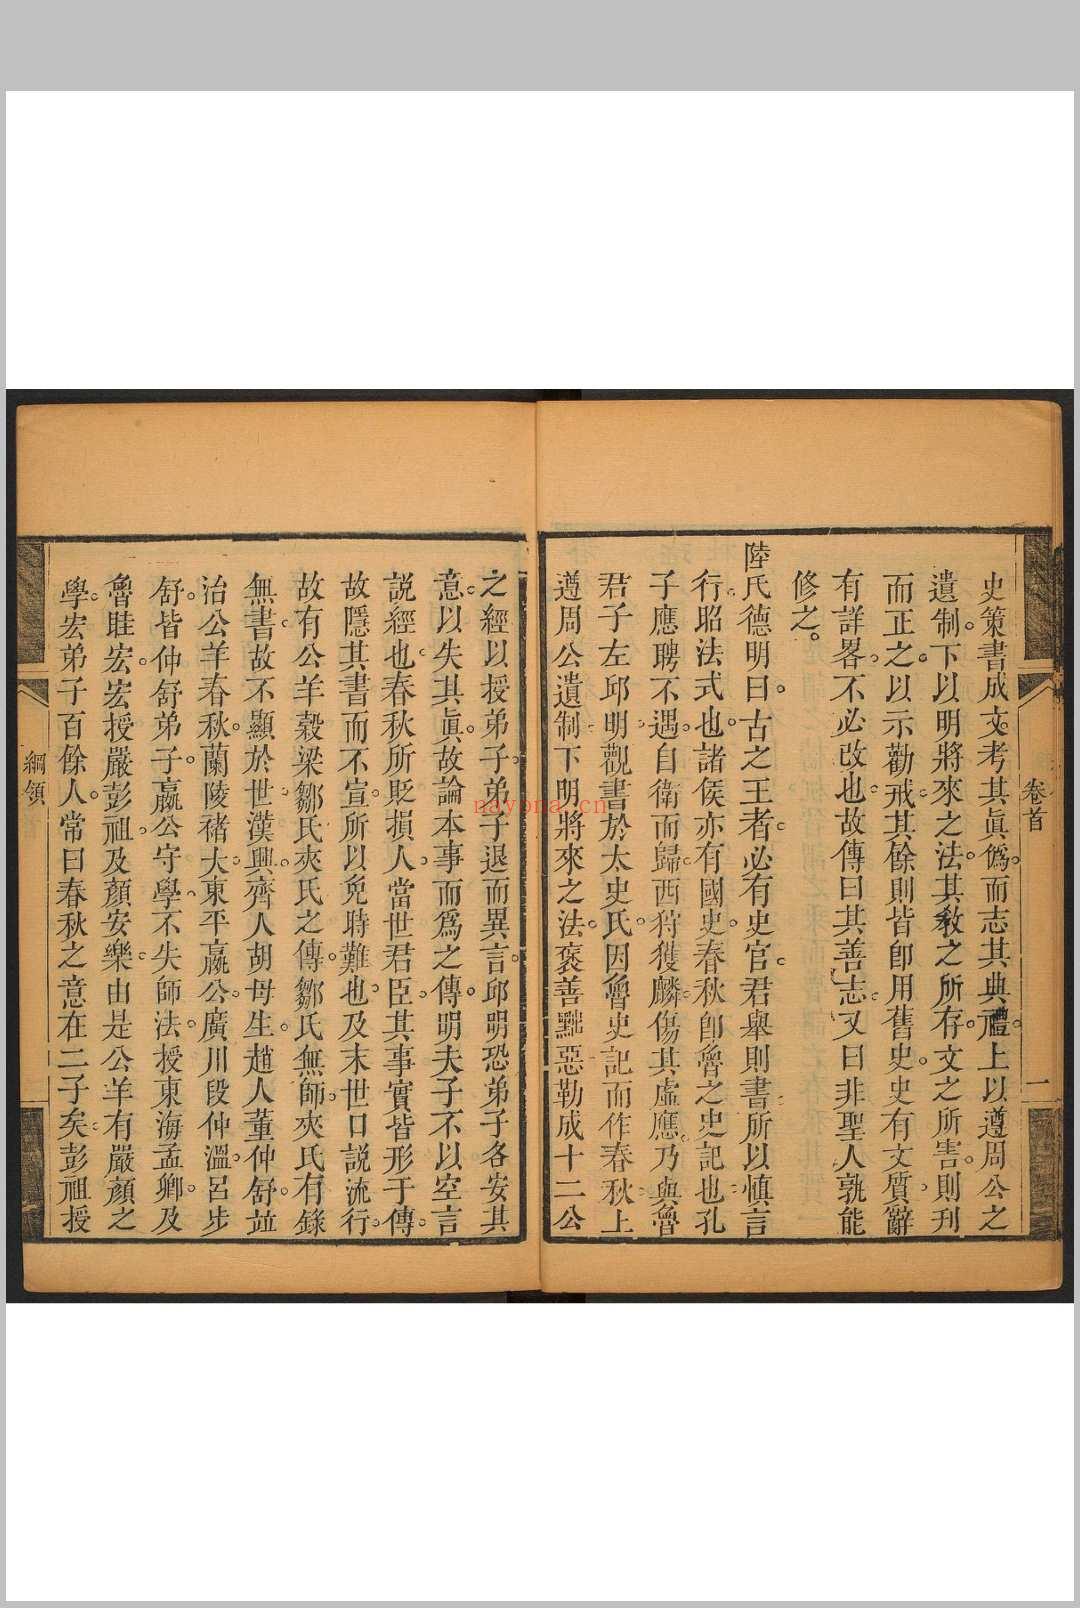 卷首
一
史策書成文考其眞僞而志其典禮上以遵周公之
遺制下以明將來之法其敎之所存文之所害則刋
而正之以示勸戒其餘則皆卽用舊史史有文質辭
有詳畧不必改也故傳曰其善志又曰非聖人孰能
修之
陸氏德明曰古之王者必有史官君舉則書所以愼言
行昭法式也諸侯亦有國史春秋卽魯之史記也孔
子應聘不遇自衛而歸西狩獲麟傷其虛應乃與魯
君子左邱明觀書於太史氏因魯史記而作春秋上
遵周公遺制下明將來之法褒善黜惡勒成十二公
之經以授弟子弟子退而異言邱明恐弟子各安其
意以失其眞故論本事而爲之傳明夫子不以空言
說經也春秋所貶損人當世君臣其事實皆形于傳
故隱其書而不宣所以免時難也及末世口說流行
故有公羊穀梁鄒氏夾氏之傳鄒氏無師夾氏有錄
無書故不顯於世漢興齊人胡母生趙人董仲舒竝
治公羊春秋蘭陵褚大東平嬴公廣川段仲溫呂步
舒皆仲舒弟子嬴公守學不失師法授東海孟卿及
魯眭宏宏授嚴彭祖及顏安樂由是公羊有嚴顏之
學宏弟子百餘人常曰春秋之意在二子矣彭祖授
綱領
nayona.cn